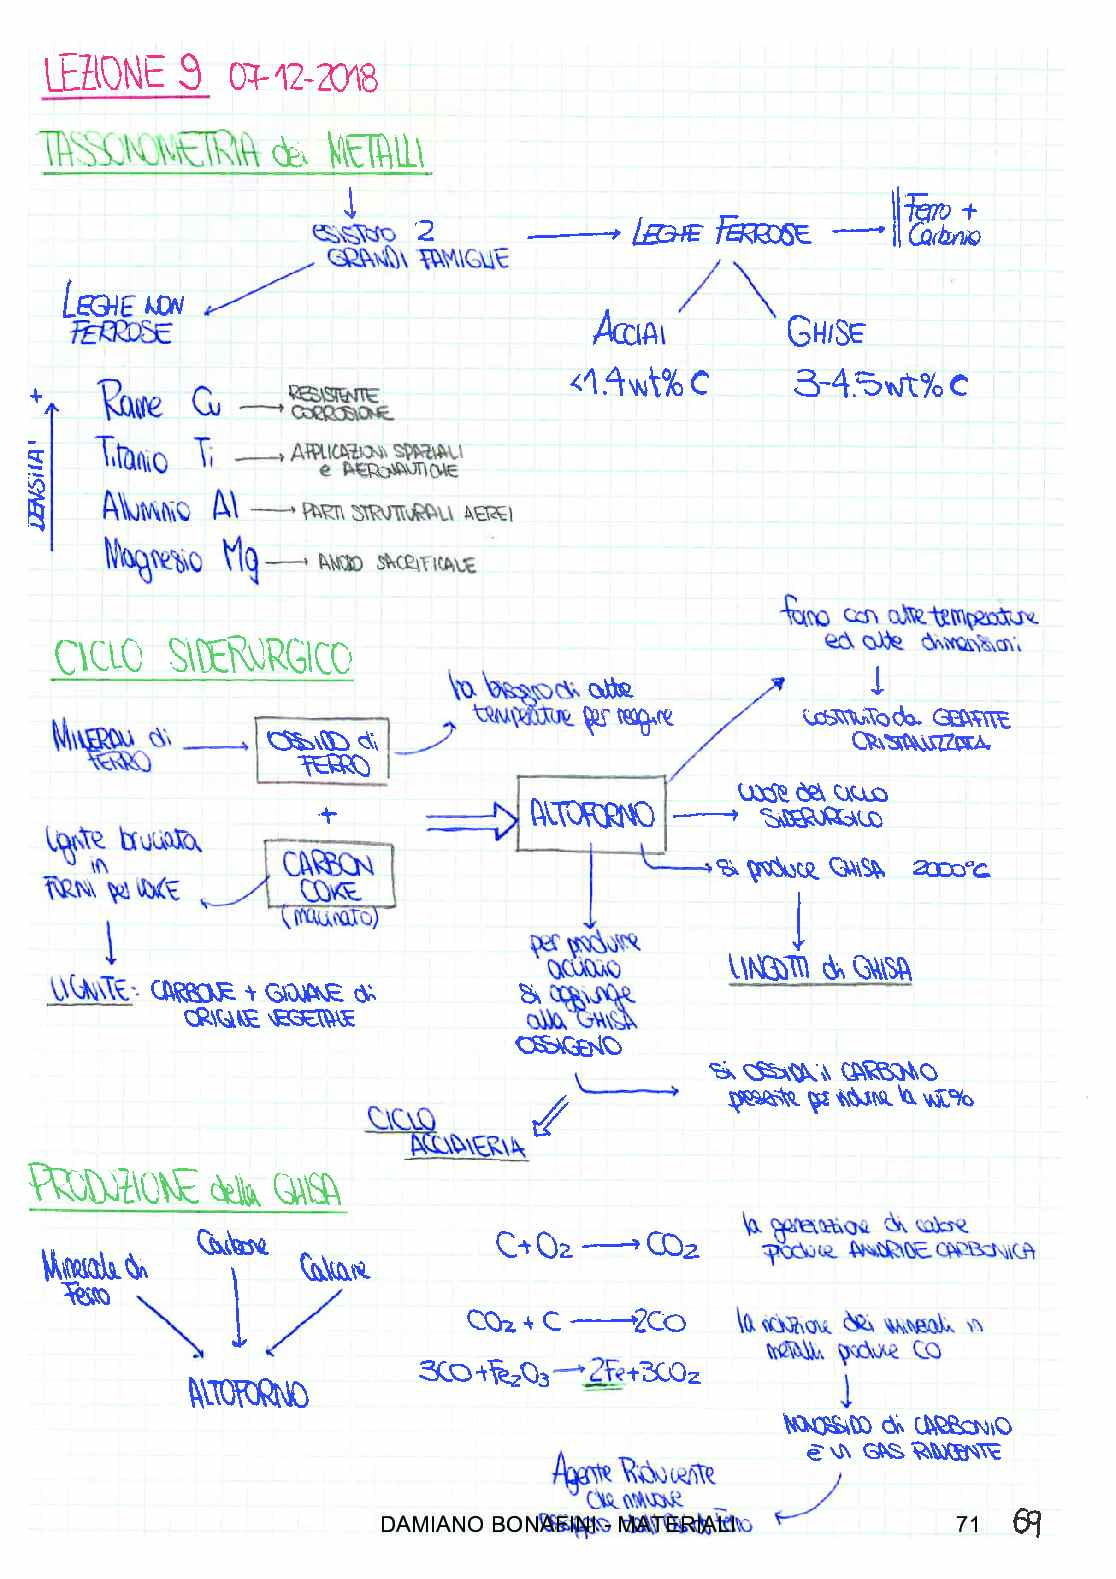 LEZIONE 9 07-12-2018
TASSONOMETRIA dei METALLI
esistono 2
GRANDI FAMIGLIE
LEGHE FERROSE
Ferro +
Carbonio
LEGHE NON
FERROSE
ACCIAI
GHISE
<1.4wt% C
3-4.5wt% C
+
DENSITA'
Rame Cu
RESISTENTE
CORROSIONE
Titanio Ti
APPLICAZIONI SPAZIALI
e AERONAUTICHE
Alluminio Al
PARTI STRUTTURALI AEREI
Magnesio Mg
ANODO SACRIFICALE
CICLO SIDERURGICO
forno con alte temperature
ed alte dimensioni
ha bisogno di alte
temperature per reagire
COSTITUITO da GRAFITE
CRISTALIZZATA
MINERALI di
FERRO
OSSIDO di
FERRO
+
ALTOFORNO
cuore del CICLO
SIDERURGICO
si produce GHISA 2000°C
lignite bruciata
in
FORNI per COKE
CARBON
COKE
(macinato)
LINGOTTI di GHISA
per produrre
acciaio
si aggiunge
alla GHISA
OSSIGENO
LIGNITE: CARBONE + GIOVANE di
ORIGINE VEGETALE
si OSSIDA il CARBONIO
presente per ridurne la wt%
CICLO
ACCIAIERIA
PRODUZIONE della GHISA
Minerale di
Ferro
Carbone
Calcare
ALTOFORNO
C+O2 → CO2
la generazione di calore
produce ANIDRIDE CARBONICA
CO2 + C → 2CO
la riduzione dei minerali in
metalli produce CO
3CO+Fe2O3 → 2Fe+3CO2
MONOSSIDO di CARBONIO
è un GAS RIDUCENTE
Agente Riducente
che rimuove
DAMIANO BONAFINI - MATERIALI
71 69